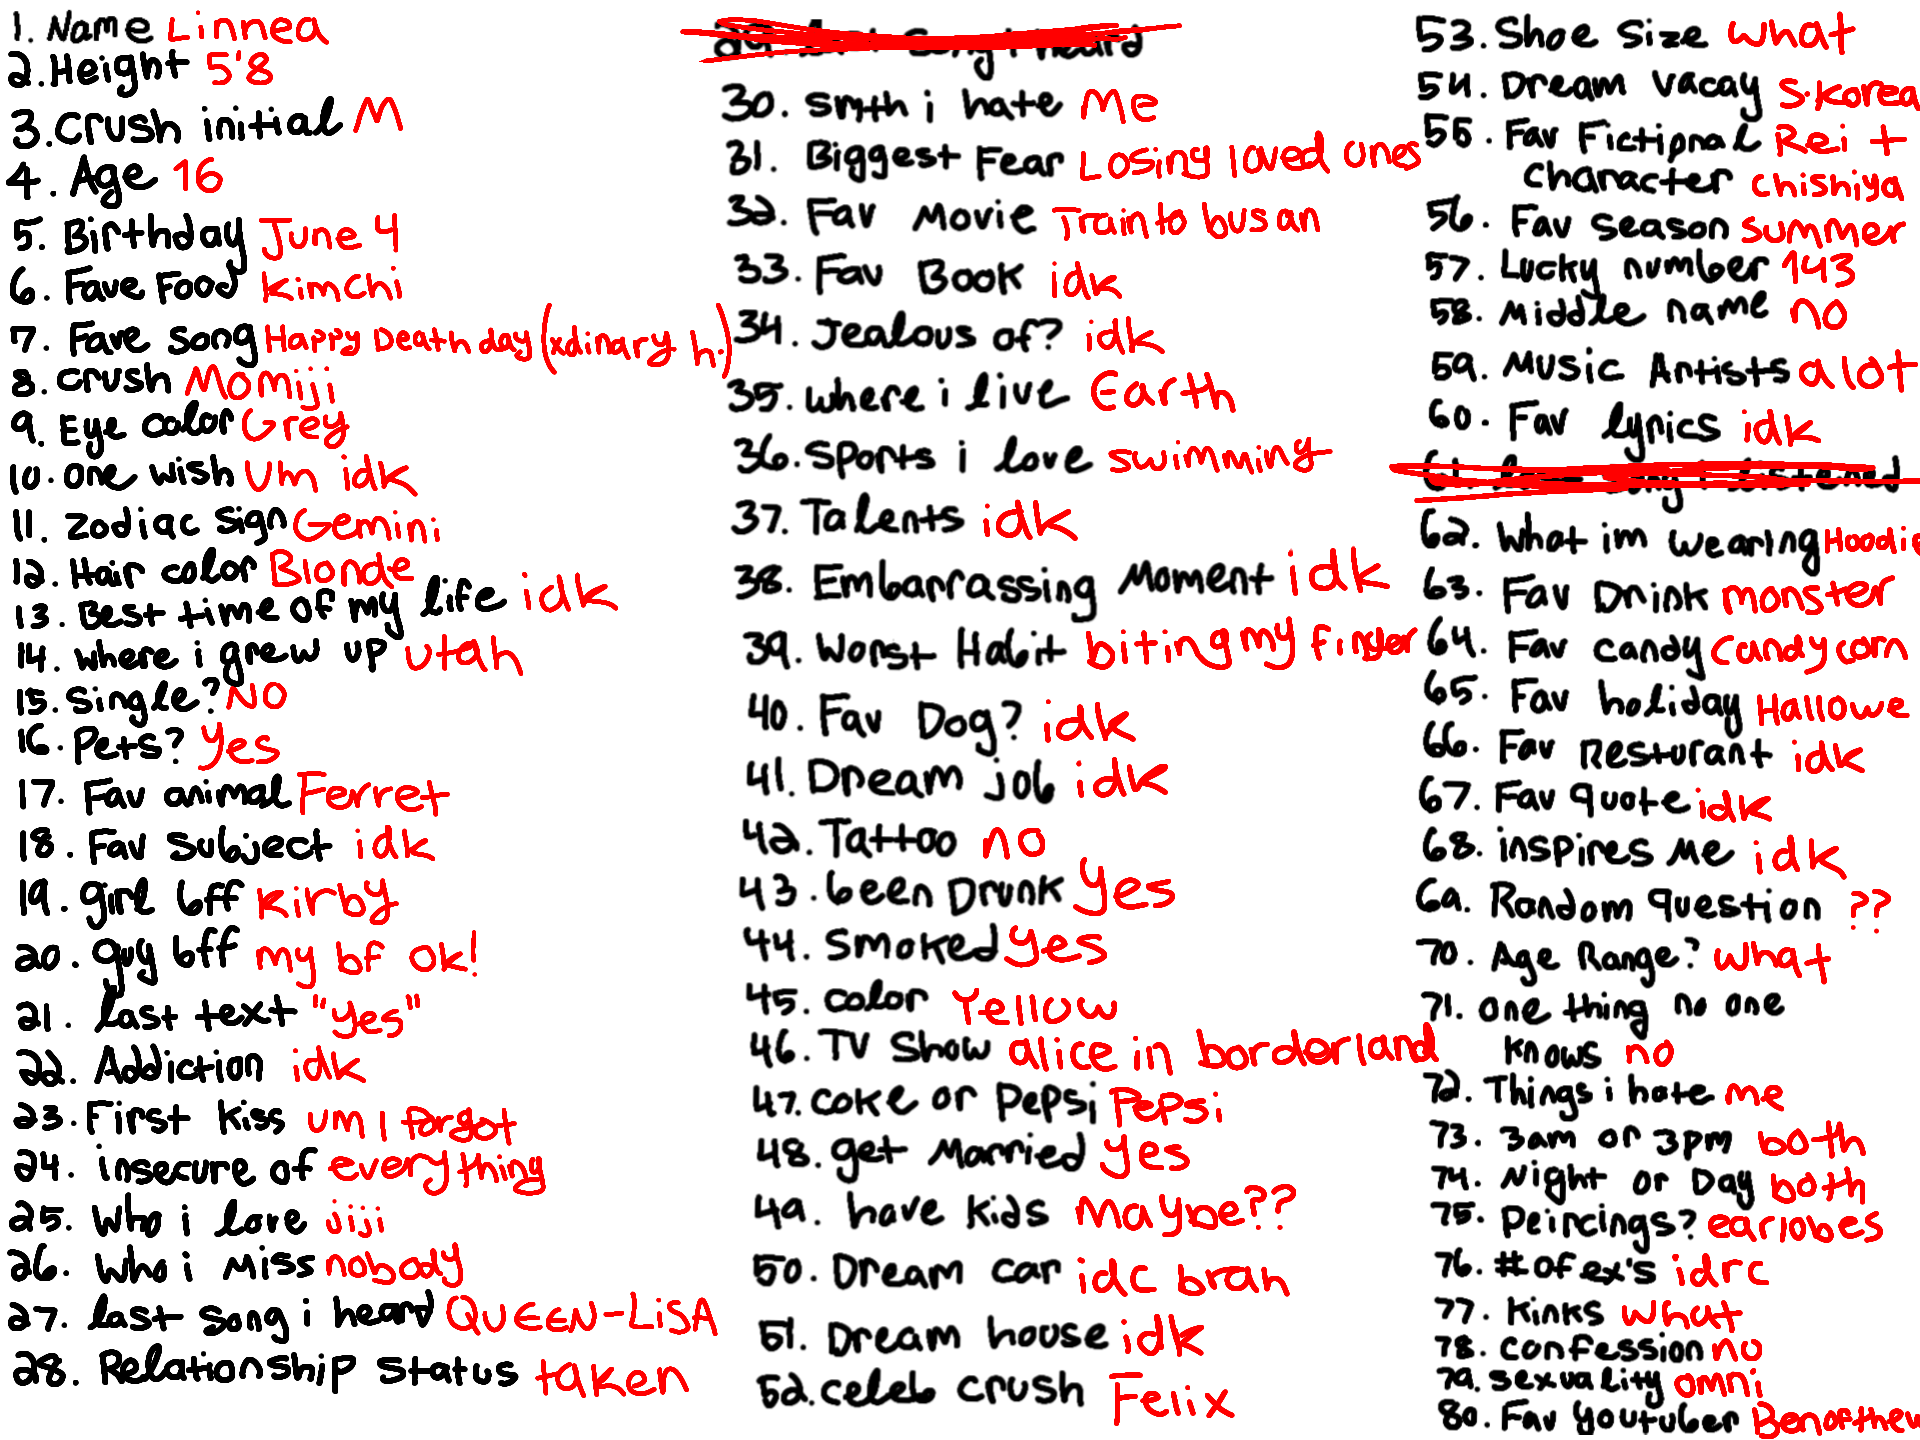 1. Name Linnea
2. Height 5'8
3. Crush initial M
4. Age 16
5. Birthday June 4
6. Fave Food Kimchi
7. Fave song Happy Death day (xdinary h.)
8. crush Momiji
9. Eye color Grey
10. one wish Um idk
11. zodiac sign Gemini
12. Hair color Blonde
13. Best time of my life idk
14. where i grew up utah
15. Single? NO
16. Pets? Yes
17. Fav animal Ferret
18. Fav subject idk
19. girl bff Kirby
20. guy bff my bf ok!
21. last text "yes"
22. Addiction idk
23. First kiss um I forgot
24. insecure of everything
25. Who i love jiji
26. Who i miss nobody
27. last song i heard QUEEN-LiSA
28. Relationship status taken
29. song i heard
30. smth i hate Me
31. Biggest Fear Losing loved ones
32. Fav Movie Train to busan
33. Fav Book idk
34. Jealous of? idk
35. where i live Earth
36. Sports i love swimming
37. Talents idk
38. Embarrassing Moment idk
39. Worst Habit biting my finger
40. Fav Dog? idk
41. Dream job idk
42. Tattoo no
43. been Drunk Yes
44. Smoked yes
45. color Yellow
46. TV Show alice in borderland
47. coke or Pepsi Pepsi
48. get Married yes
49. have kids Maybe??
50. Dream car idc brah
51. Dream house idk
52. celeb crush Felix
53. Shoe Size what
54. Dream vacay S.Korea
55. Fav Fictipnal Rei +
Character chishiya
56. Fav season summer
57. Lucky number 143
58. Middle name no
59. Music Artists a lot
60. Fav lyrics idk
61. song i listened
62. What im wearing Hoodie
63. Fav Drink monster
64. Fav candy candy corn
65. Fav holiday Hallowe
66. Fav Resturant idk
67. Fav quote idk
68. inspires Me idk
69. Random question ??
70. Age Range? what
71. one thing no one
knows no
72. Things i hate me
73. 3am or 3pm both
74. Night or Day both
75. Peircings? earlobes
76. # of ex's idrc
77. Kinks what
78. confession no
79. sexuality omni
80. Fav Youtuber Benofthew